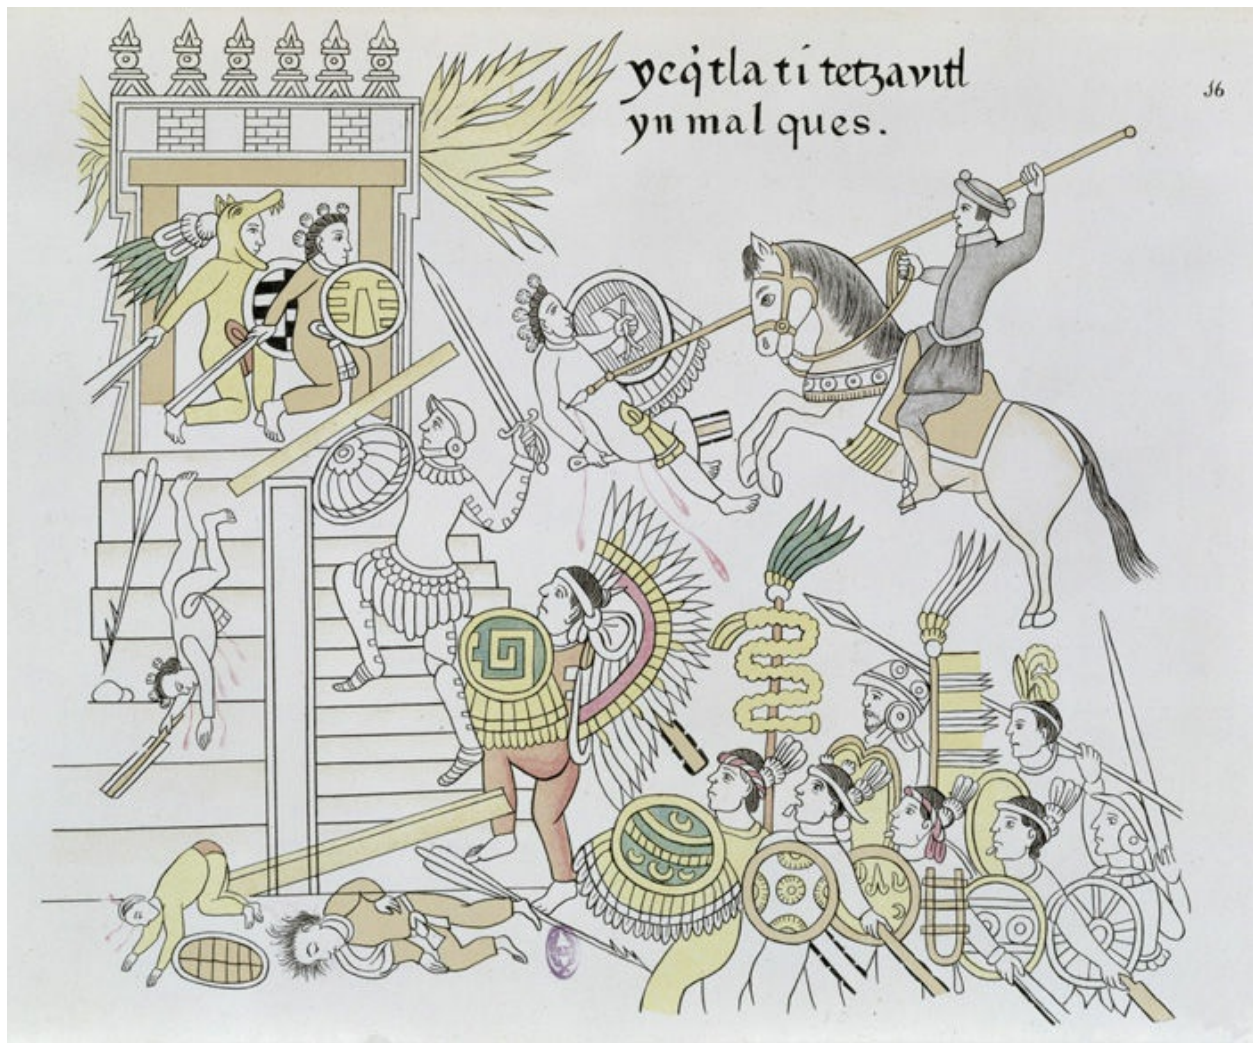 ycq̓tla ti tetzavitl
yn mal ques.
56